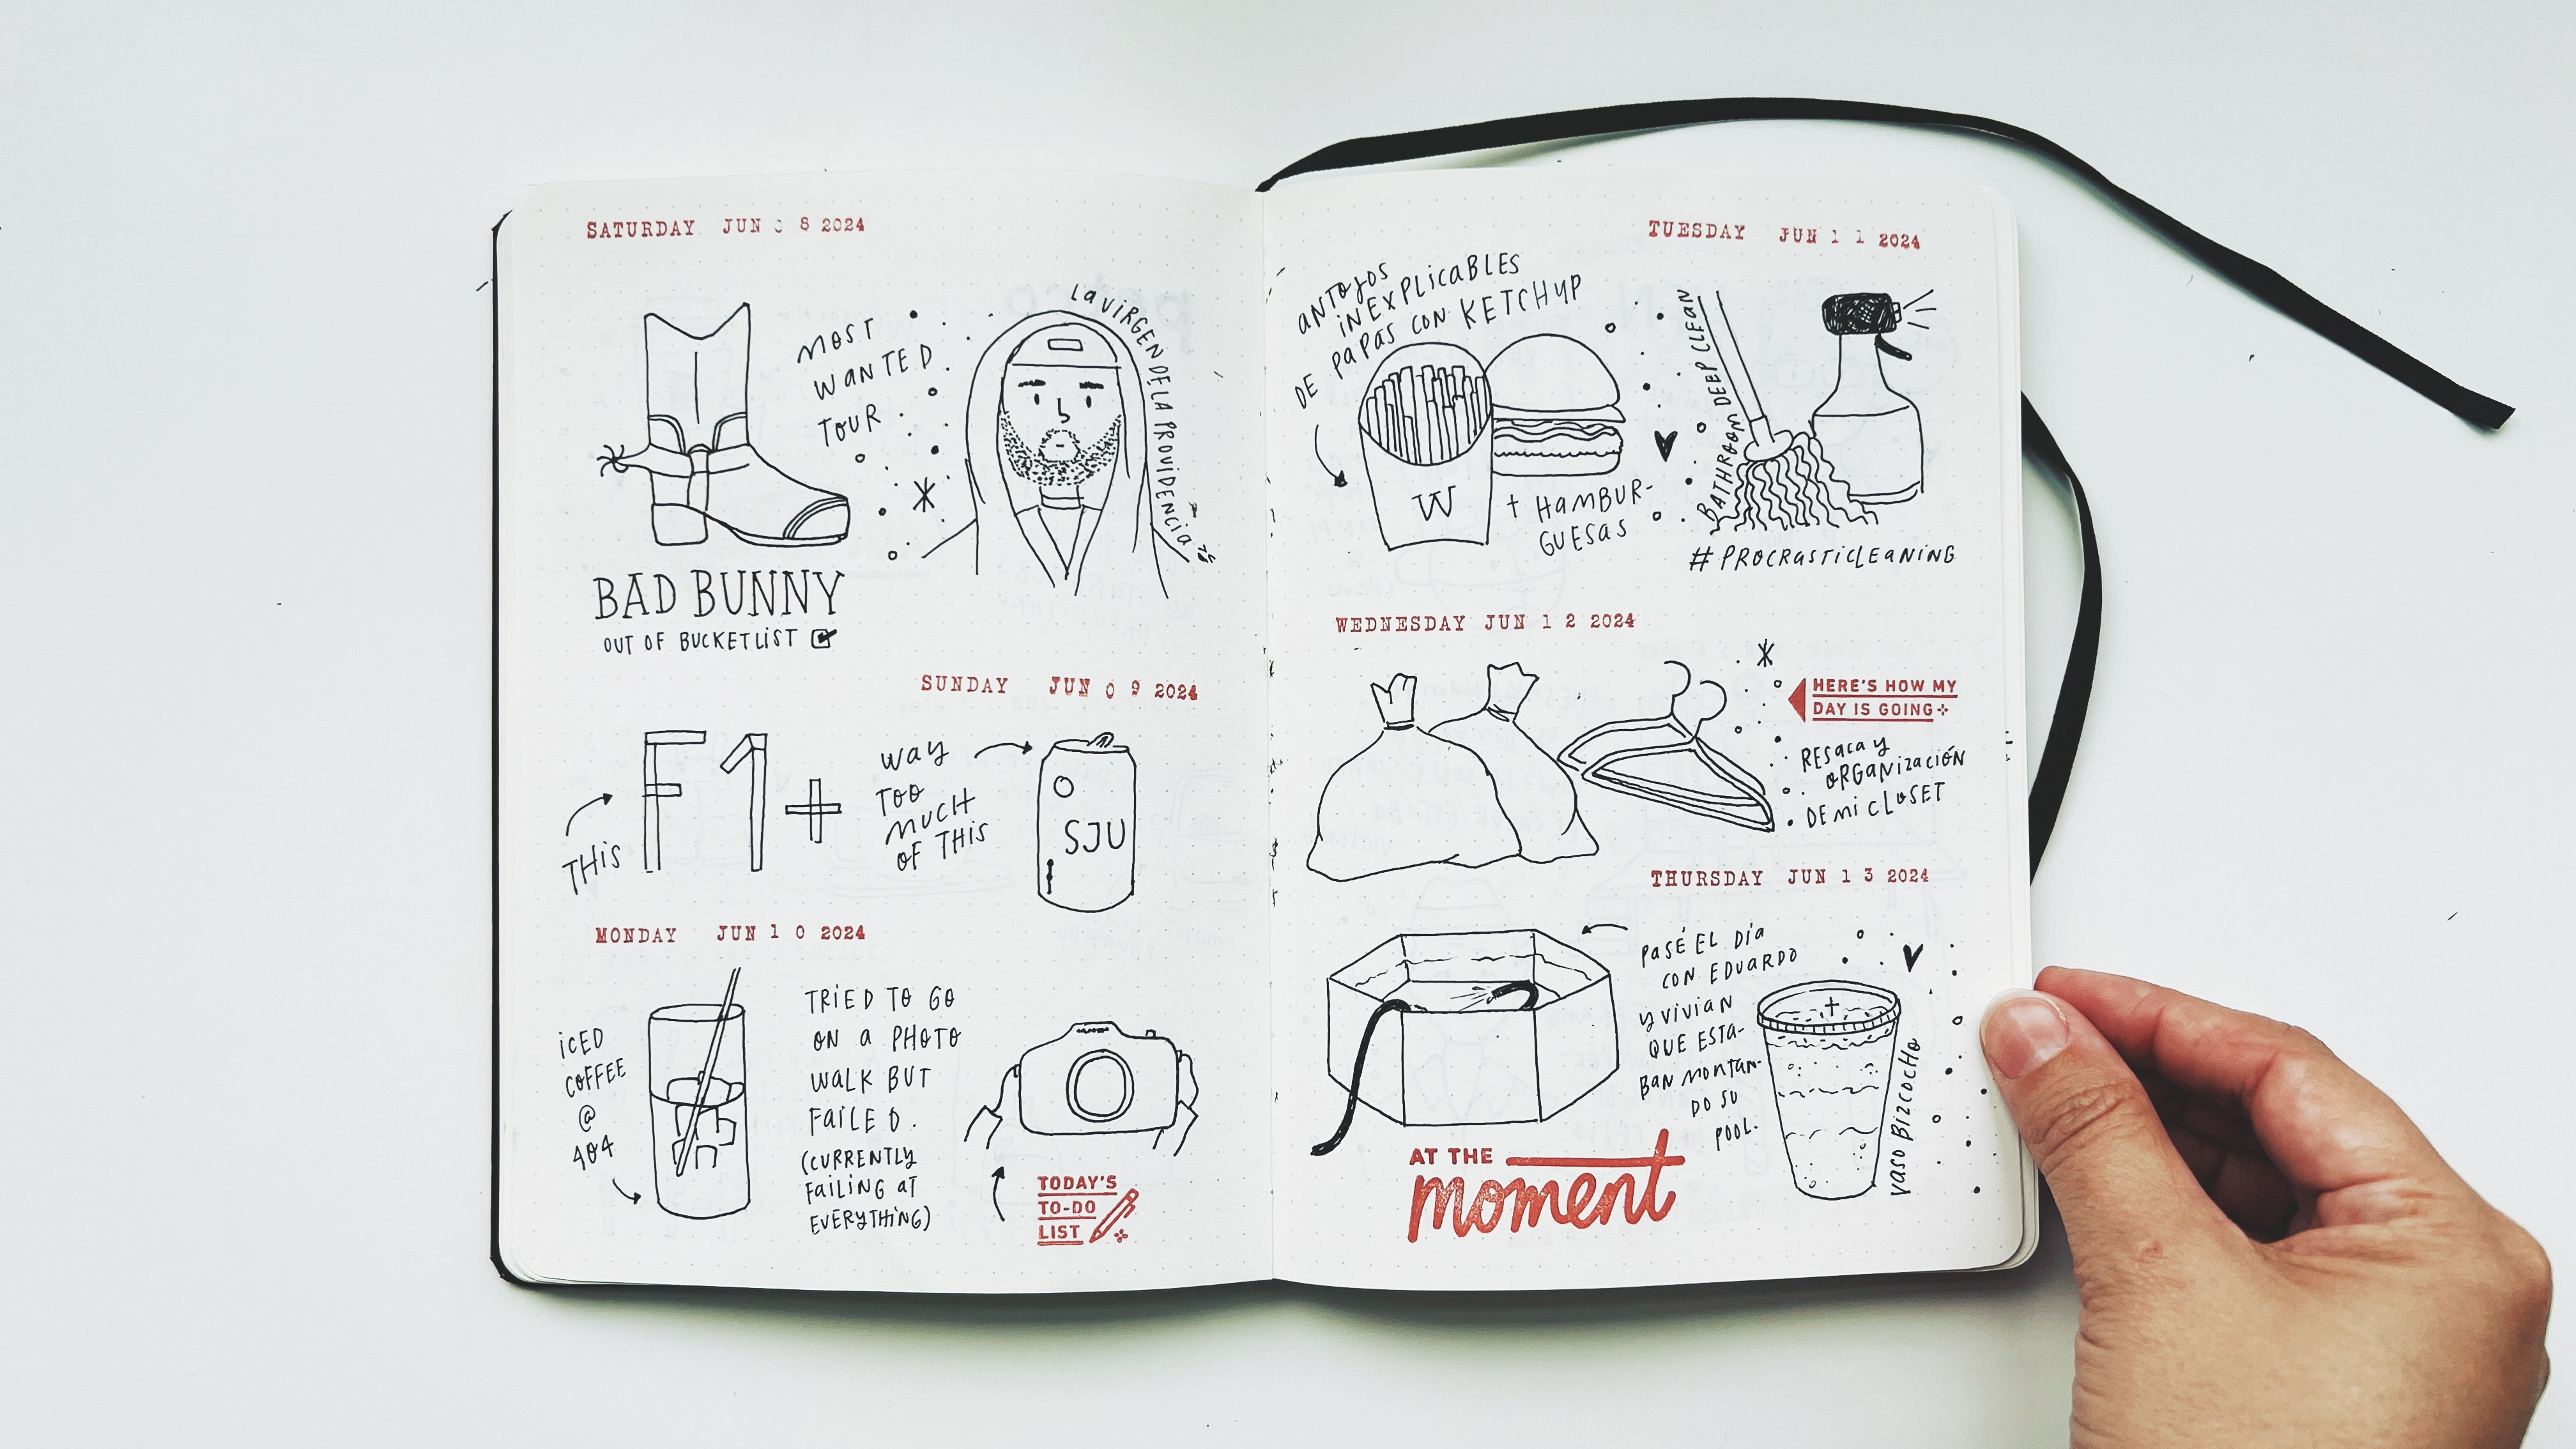 SATURDAY JUN 0 8 2024
MOST
WANTED
TOUR
LA VIRGEN DE LA PROVIDENCIA
BAD BUNNY
OUT OF BUCKETLIST
SUNDAY JUN 0 9 2024
THIS
F1+
WAY
TOO
MUCH
OF THIS
SJU
MONDAY JUN 1 0 2024
ICED
COFFEE
@
404
TRIED TO GO
ON A PHOTO
WALK BUT
FAILED.
(CURRENTLY
FAILING AT
EVERYTHING)
TODAY'S
TO-DO
LIST
TUESDAY JUN 1 1 2024
ANTOJOS
INEXPLICABLES
DE PAPAS CON KETCHUP
W
+ HAMBUR-
GUESAS
BATHROOM DEEP CLEAN
#PROCRASTICLEANING
WEDNESDAY JUN 1 2 2024
HERE'S HOW MY
DAY IS GOING
RESACA Y
ORGANIZACIÓN
DE MI CLOSET
THURSDAY JUN 1 3 2024
PASÉ EL DÍA
CON EDUARDO
Y VIVIAN
QUE ESTA-
BAN MONTAN-
DO SU
POOL.
VASO BIZCOCHO
AT THE
moment